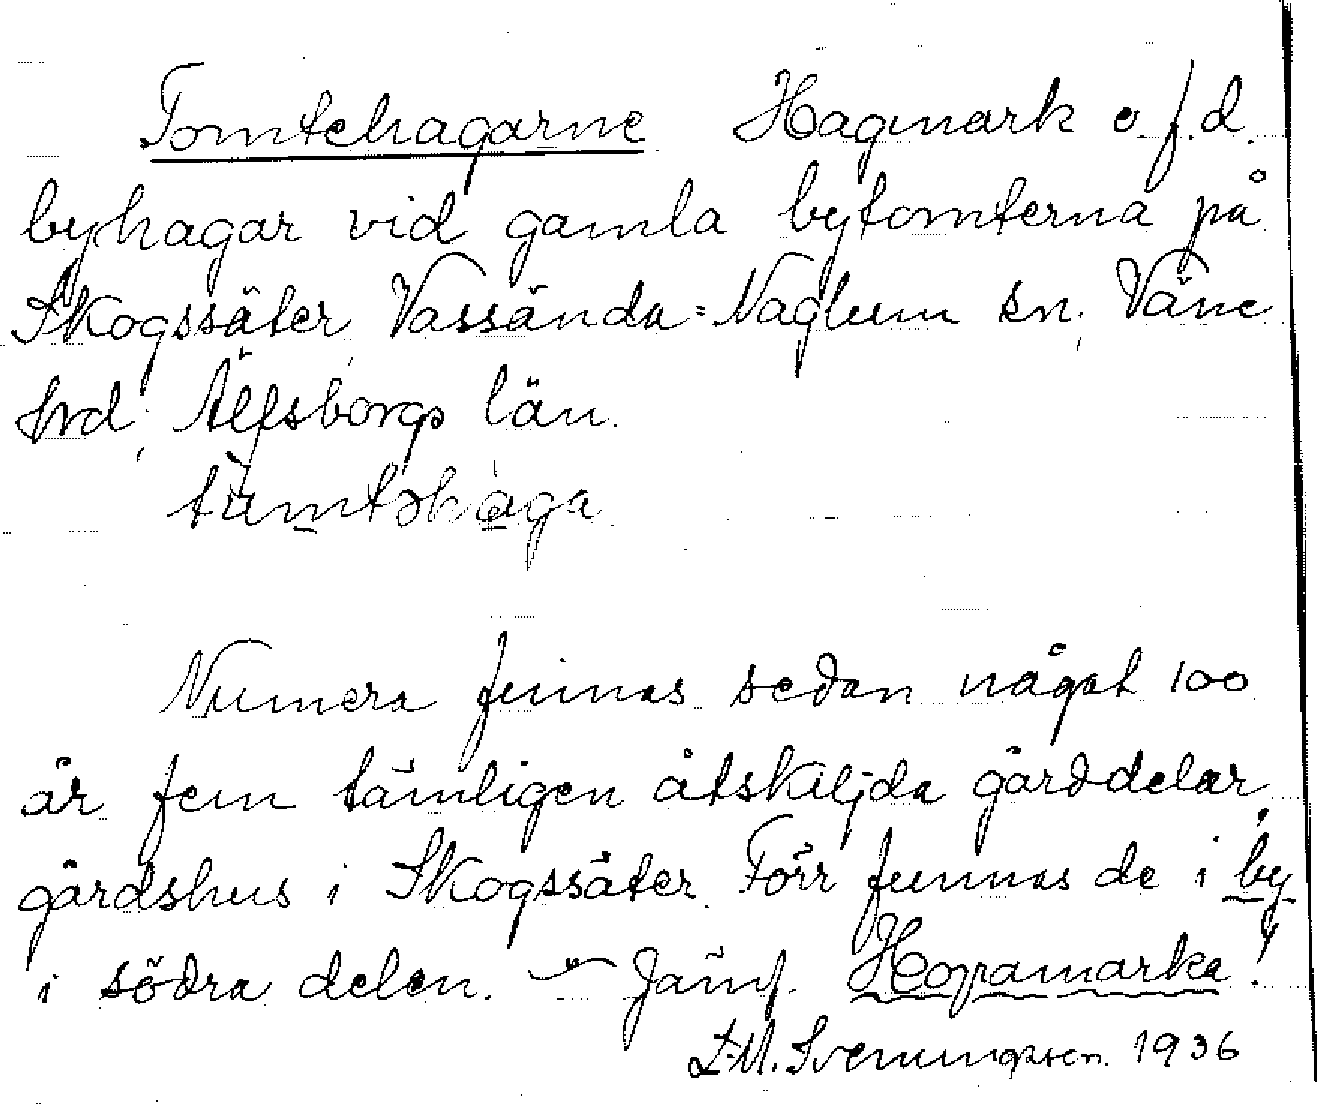 Tomtehagarne Hagmark o. f.d.
byhagar vid gamla bytomterna på
Skogssäter, Vassända=Naglum sn, Väne
hrd, Älfsborgs län.
Numera finnas sedan något 100
år fem tämligen åtskiljda gårddelar,
gårdshus i Skogssäter. Förr funnas de i by
i södra delen. – Jämf. Hopamarka!
Svenungsson. 1936